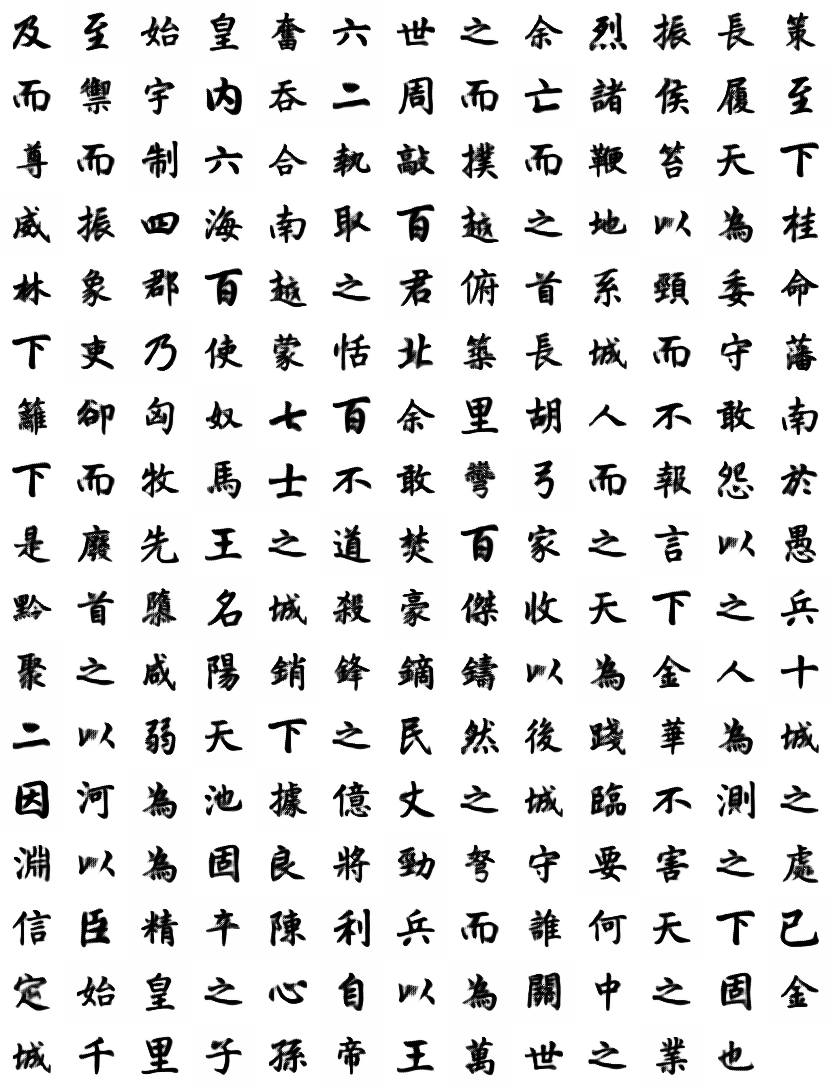 及至始皇奮六世之余烈振長策
而禦宇内吞二周而亡諸侯履至
尊而制六合執敲撲而鞭笞天下
威振四海南取百越之地以為桂
林象郡百越之君俯首系頸委命
下吏乃使蒙恬北築長城而守藩
籬卻匈奴七百余里胡人不敢南
下而牧馬士不敢彎弓而報怨於
是廢先王之道焚百家之言以愚
黔首隳名城殺豪傑收天下之兵
聚之咸陽銷鋒鏑鑄以為金人十
二以弱天下之民然後踐華為城
因河為池據億丈之城臨不測之
淵以為固良將勁弩守要害之處
信臣精卒陳利兵而誰何天下已
定始皇之心自以為關中之固金
城千里子孫帝王萬世之業也